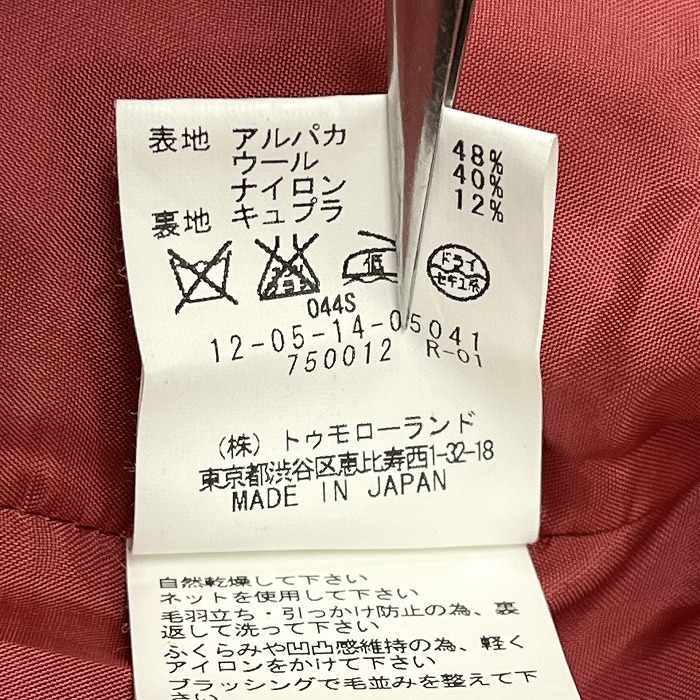 表地 アルパカ 48%
ウール 40%
ナイロン 12%
裏地 キュプラ
低 ドライ
セキユ系
044S
12-05-14-05041
750012 R-01
(株) トゥモローランド
東京都渋谷区恵比寿西1-32-18
MADE IN JAPAN
自然乾燥して下さい
ネットを使用して下さい
毛羽立ち・引っかけ防止の為、裏
返して洗って下さい
ふくらみや凹凸感維持の為、軽く
アイロンをかけて下さい
ブラッシングで毛並みを整えて下
さい